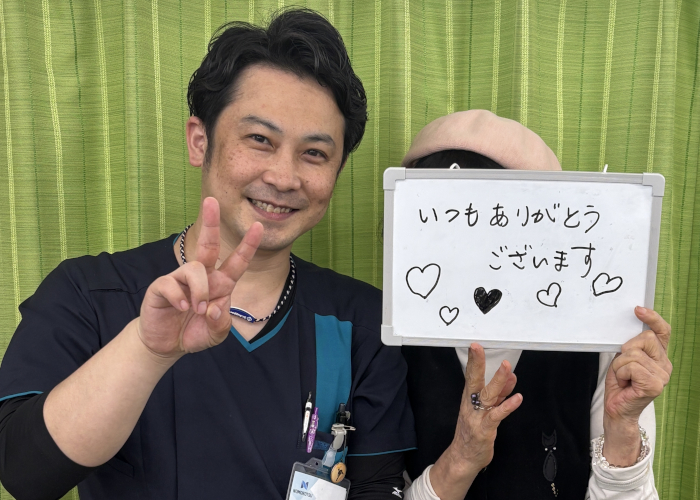 いつもありがとう
ございます